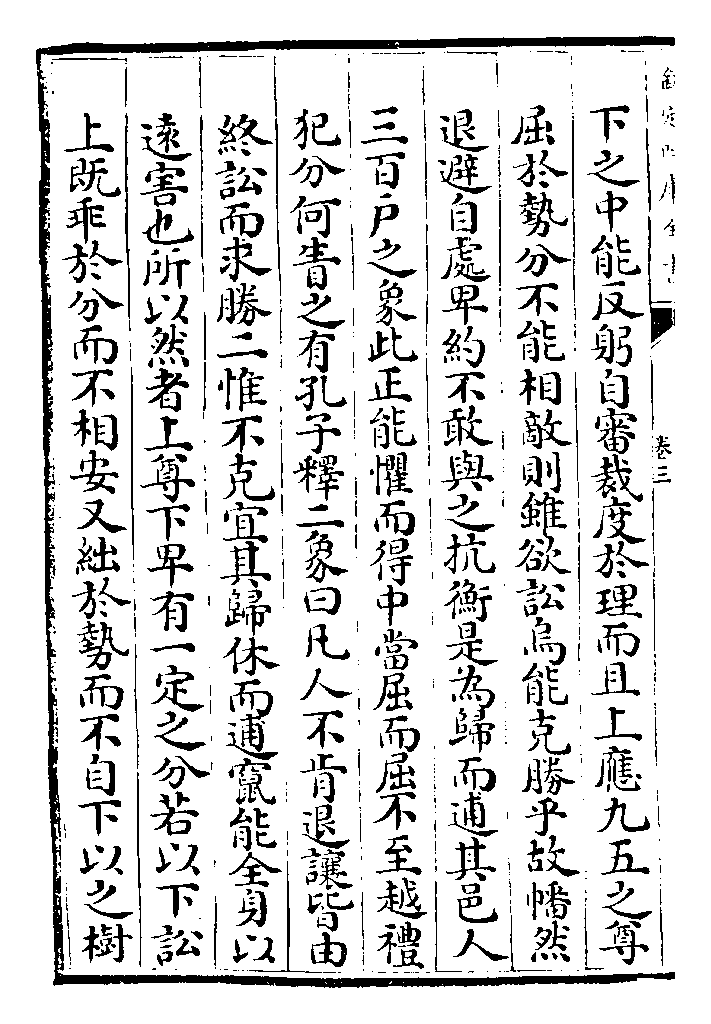 欽定四庫全書
卷三
下之中能反躬自審裁度於理而且上應九五之尊
屈於勢分不能相敵則雖欲訟烏能克勝乎故幡然
退避自處卑約不敢與之抗衡是為歸而逋其邑人
三百戶之象此正能懼而得中當屈而屈不至越禮
犯分何眚之有孔子釋二象曰凡人不肯退讓皆由
終訟而求勝二惟不克宜其歸休而逋竄能全身以
遠害也所以然者上尊下卑有一定之分若以下訟
上既乖於分而不相安又絀於勢而不自下以之樹